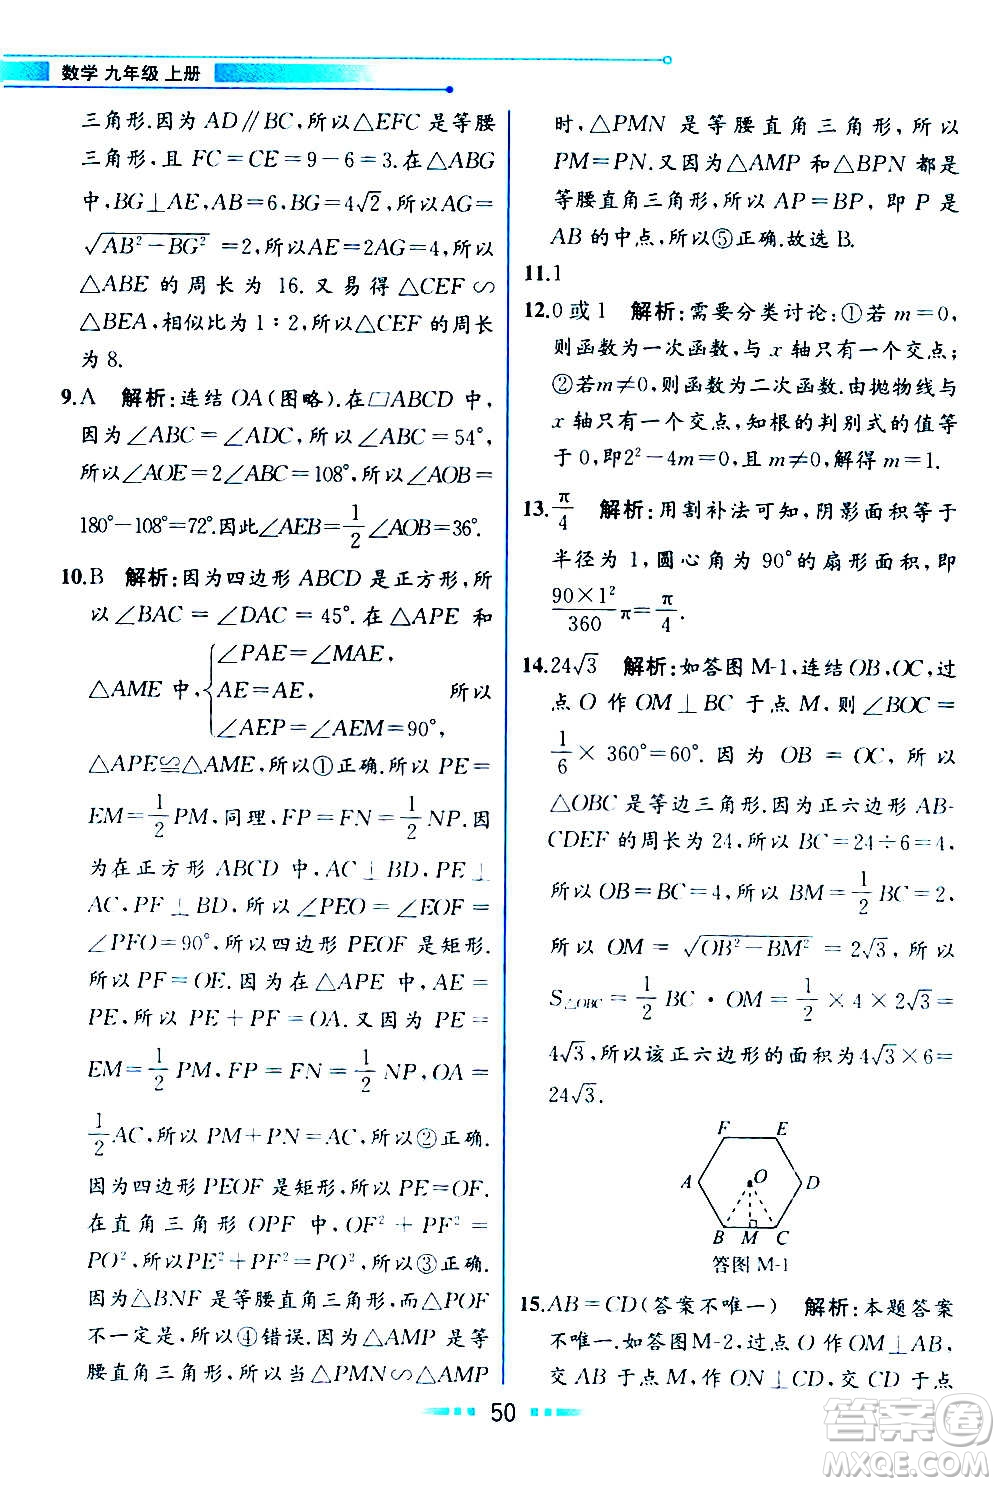 数学 九年级 上册
三角形.因为 AD∥BC,所以△EFC 是等腰
三角形,且 FC=CE=9-6=3.在△ABG
中,BG⊥AE,AB=6,BG=4√2,所以AG=
√(AB²-BG²)=2,所以AE=2AG=4,所以
△ABE 的周长为 16.又易得△CEF∽
△BEA,相似比为1:2,所以△CEF的周长
为8.
9.A 解析:连结OA(图略).在□ABCD 中,
因为∠ABC=∠ADC,所以∠ABC=54°,
所以∠AOE=2∠ABC=108°,所以∠AOB=
180°-108°=72°.因此∠AEB=1/2∠AOB=36°.
10.B 解析:因为四边形 ABCD 是正方形,所
以∠BAC=∠DAC=45°.在△APE 和
△AME中,{∠PAE=∠MAE,
AE=AE,
∠AEP=∠AEM=90°, 所以
△APE≌△AME,所以①正确.所以 PE=
EM=1/2PM,同理,FP=FN=1/2NP.因
为在正方形 ABCD 中,AC⊥BD,PE⊥
AC,PF⊥BD,所以∠PEO=∠EOF=
∠PFO=90°,所以四边形 PEOF 是矩形.
所以 PF=OE.因为在△APE 中,AE=
PE,所以 PE+PF=OA.又因为 PE=
EM=1/2PM,FP=FN=1/2NP,OA=
1/2AC,所以 PM+PN=AC,所以②正确.
因为四边形PEOF是矩形,所以PE=OF.
在直角三角形 OPF 中,OF²+PF²=
PO²,所以PE²+PF²=PO²,所以③正确.
因为△BNF是等腰直角三角形,而△POF
不一定是,所以④错误.因为△AMP是等
腰直角三角形,所以当△PMN∽△AMP
时,△PMN 是等腰直角三角形,所以
PM=PN.又因为△AMP和△BPN 都是
等腰直角三角形,所以 AP=BP,即 P 是
AB的中点,所以⑤正确.故选B.
11.1
12.0或1 解析:需要分类讨论:①若m=0,
则函数为一次函数,与 x 轴只有一个交点;
②若m≠0,则函数为二次函数.由抛物线与
x 轴只有一个交点,知根的判别式的值等
于0,即2²-4m=0,且m≠0,解得m=1.
13.π/4 解析:用割补法可知,阴影面积等于
半径为 1,圆心角为 90°的扇形面积,即
90×1²/360π=π/4.
14.24√3 解析:如答图 M-1,连结OB,OC,过
点 O 作 OM⊥BC 于点 M,则∠BOC=
1/6×360°=60°.因为 OB=OC,所以
△OBC是等边三角形.因为正六边形 AB-
CDEF 的周长为 24,所以 BC=24÷6=4,
所以 OB=BC=4,所以 BM=1/2BC=2.
所以 OM=√(OB²-BM²)=2√3,所以
S△OBC=1/2BC·OM=1/2×4×2√3=
4√3,所以该正六边形的面积为4√3×6=
24√3.
F E
A O D
B M C
答图M-1
15.AB=CD(答案不唯一) 解析:本题答案
不唯一.如答图M-2,过点 O 作OM⊥AB,
交 AB 于点 M,作 ON⊥CD,交 CD于点
50
答案卷